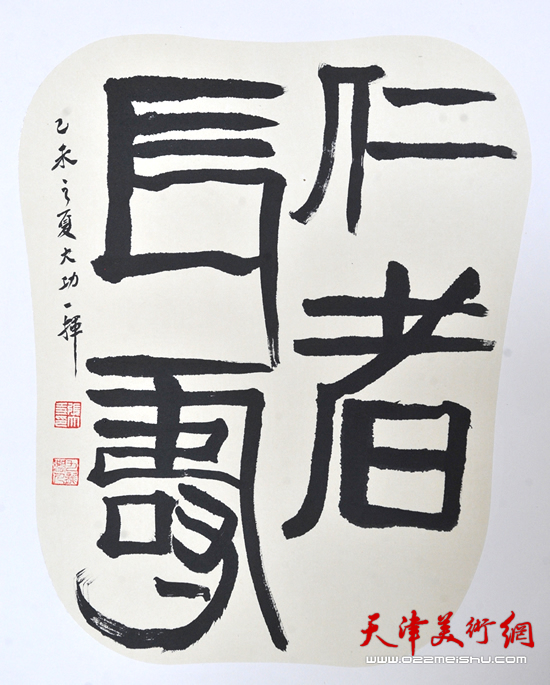 仁者
長壽
乙未之夏大功一揮
天津美術網
www.022meishu.com